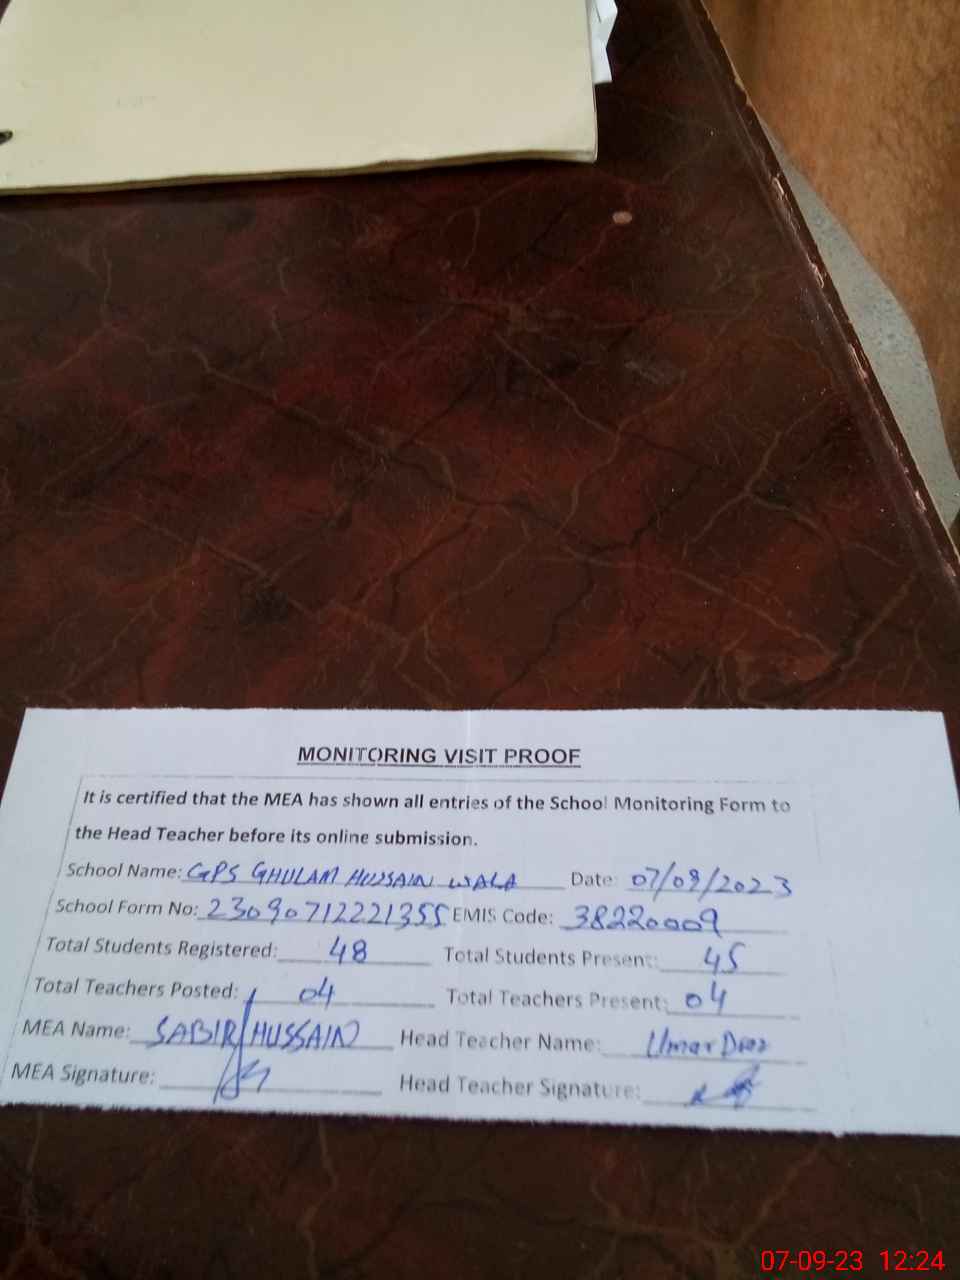 MONITORING VISIT PROOF
It is certified that the MEA has shown all entries of the School Monitoring Form to
the Head Teacher before its online submission.
School Name: GPS GHULAM HUSSAIN WALA Date: 07/09/2023
School Form No: 23090712221355 EMIS Code: 38220009
Total Students Registered: 48 Total Students Present: 45
Total Teachers Posted: 04 Total Teachers Present: 04
MEA Name: SABIR HUSSAIN Head Teacher Name: Umar
MEA Signature: Head Teacher Signature:
07-09-23 12:24